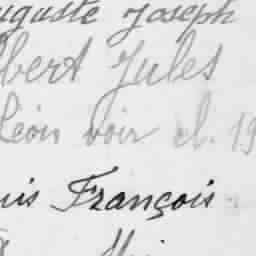 uguste Joseph
lbert Jules
Léon voir cl. 19
uis François